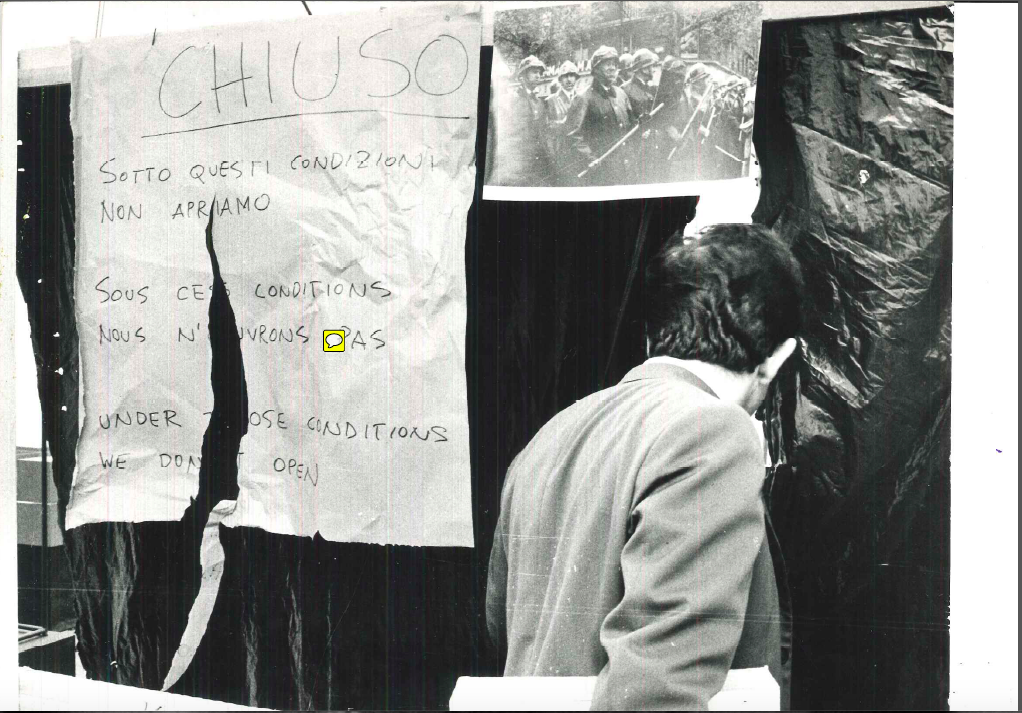 CHIUSO
SOTTO QUESTI CONDIZIONI
NON APRIAMO
SOUS CES CONDITIONS
NOUS N' UVRONS PAS
UNDER T OSE CONDITIONS
WE DON T OPEN